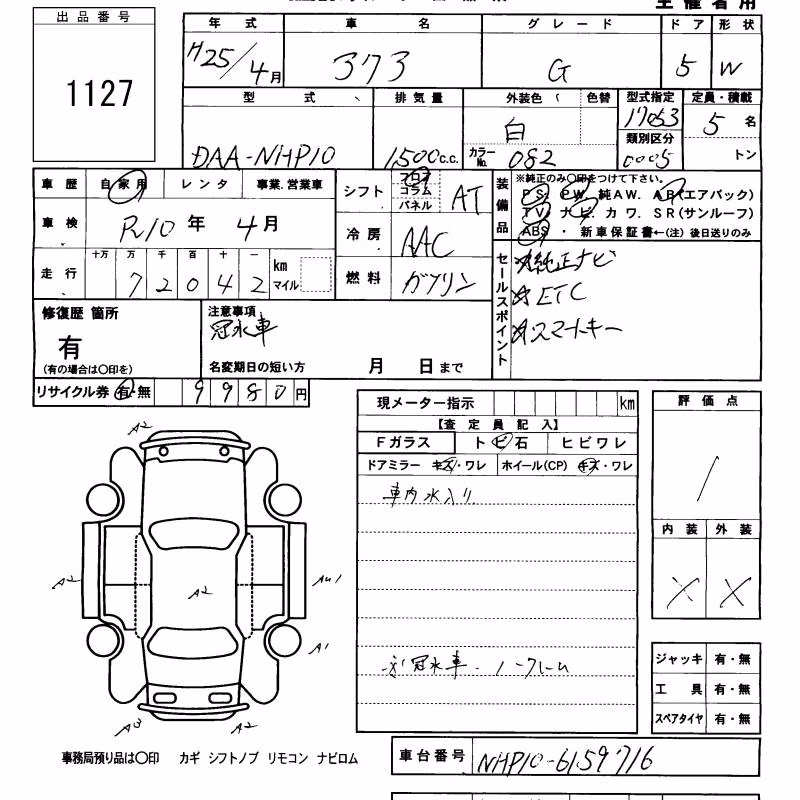 主催者用
出品番号
1127
年式 車名 グレード ドア 形状
H25/4月 アクア G 5 W
型式 排気量 外装色 色替 型式指定 定員・積載
DAA-NHP10 1500c.c. 白 17053 5名
カラーNo. 082 類別区分 0005 トン
車歴 自家用 レンタ 事業.営業車
車検 R10年 4月
走行 十万 万 千 百 十 一 km マイル
7 2 0 4 2
シフト フロア コラム パネル AT
冷房 AAC
燃料 ガソリン
装備品
※純正のみ○印をつけて下さい。
PS. PW. 純AW. AB(エアバック)
TV. ナビ. カワ. SR(サンルーフ)
ABS ・ 新車保証書←(注) 後日送りのみ
セールスポイント
☆純正ナビ
☆ETC
☆スマートキー
修復歴 箇所
有
(有の場合は○印を)
注意事項
冠水車
名変期日の短い方 月 日まで
リサイクル券 有・無 9980円
現メーター指示 km
【査定員記入】
Fガラス トビ石 ヒビワレ
ドアミラー キズ・ワレ ホイール(CP) キズ・ワレ
車内水入り
冠水車. ノークレーム
評価点
1
内装 外装
X X
ジャッキ 有・無
工具 有・無
スペアタイヤ 有・無
A2
A2
A2
A1
A3
A2
事務局預り品は○印 カギ シフトノブ リモコン ナビロム
車台番号 NHP10-6159716